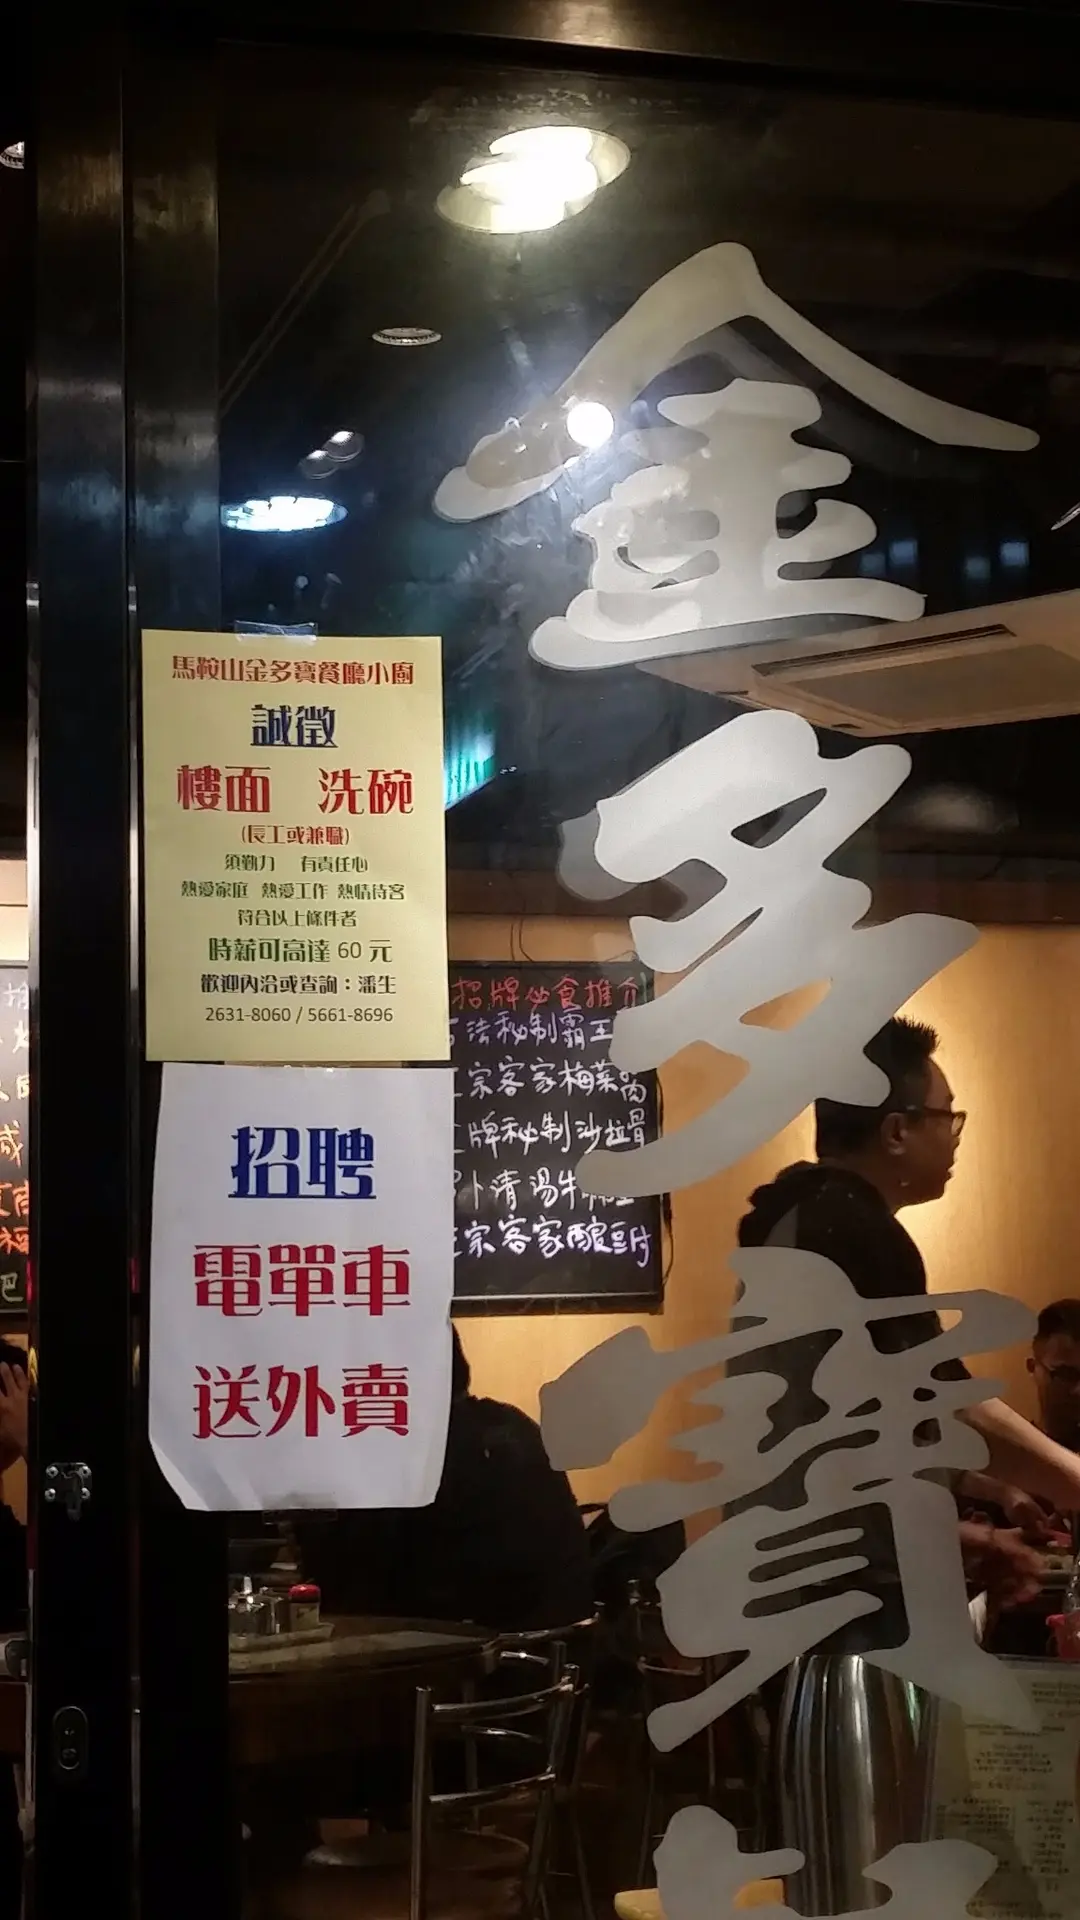 金多寶
馬鞍山金多寶餐廳小廚
誠徵
樓面 洗碗
(長工或兼職)
須勤力 有責任心
熱愛家庭 熱愛工作 熱情待客
符合以上條件者
時薪可高達 60 元
歡迎內洽或查詢：潘生
2631-8060 / 5661-8696
招聘
電單車
送外賣
招牌必食推介
法秘制霸王
宗客家梅菜肉
牌秘制沙拉骨
清湯牛
宗客家釀豆